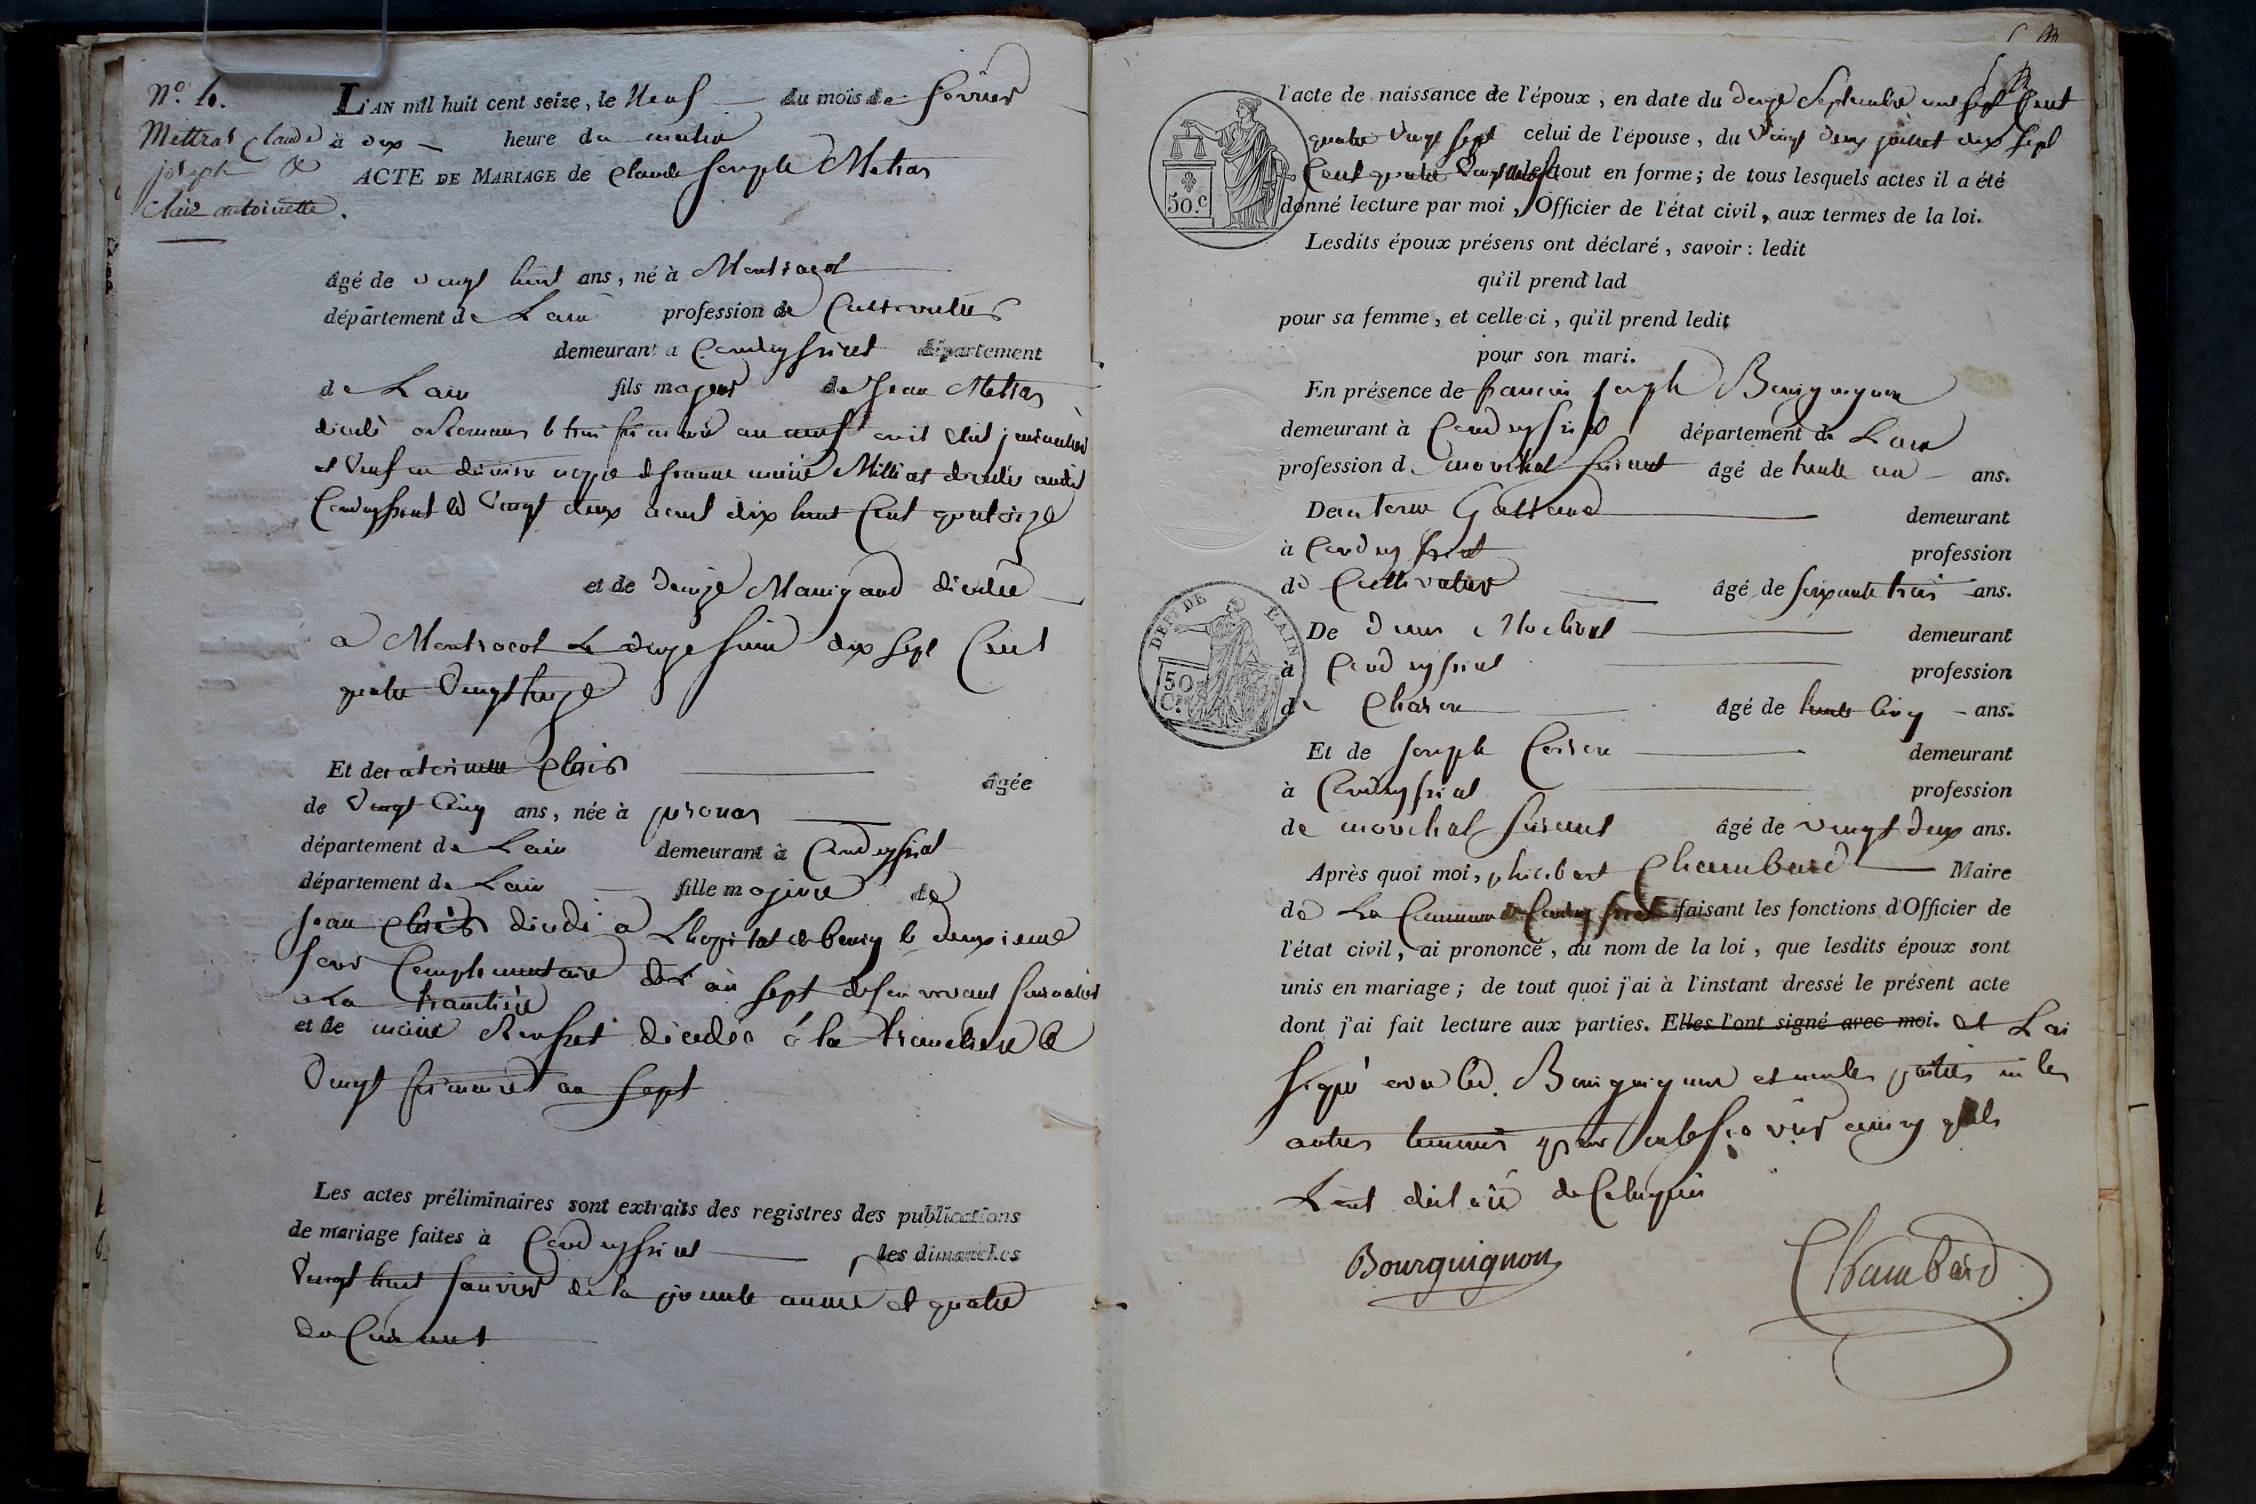 N.º 10.
Mettras Claude
joseph &
Clair antoinette.
L'AN mil huit cent seize, le Neuf du mois de fevrier
à dix heure du matin
ACTE DE MARIAGE de Claude joseph Metras
âgé de vingt huit ans, né à Montracol
département de Lain profession de Cultivateur
demeurant a Condeyssiat département
de Lain fils majeur de Jean Metras
décédé a Romans le trois frimaire an neuf
et Veuf en de jeanne marie Millias décédée audit
Condeyssiat le Vingt deux aout dix huit Cent quatorze
et de Denize Manigand décédée
a Montracol Le douze juin dix sept Cent
quatre Vingt treize
Et de antoinette Clair âgée
de Vingt Cinq ans, née à peronas
département de Lain demeurant à Condeyssiat
département de Lain fille majeure de
jean Clair décédé a Lhopital de bourg le deuxieme
jour Complementaire de L'an sept de son vivant journalier
a La tranclière
et de marie décédée à la tranclière le
Vingt frimaire an sept
Les actes préliminaires sont extraits des registres des publications
de mariage faites à Condeyssiat les dimanches
Vingt huit janvier de la presente année et quatre
du Courant
l'acte de naissance de l'époux, en date du douze Septembre mil sept Cent
quatre Vingt sept celui de l'épouse, du Vingt deux juillet dix sept
Cent quatre Vingt le tout en forme; de tous lesquels actes il a été
donné lecture par moi, Officier de l'état civil, aux termes de la loi.
Lesdits époux présens ont déclaré, savoir: ledit
qu'il prend lad
pour sa femme, et celle-ci, qu'il prend ledit
pour son mari.
En présence de francois joseph Bourguignon
demeurant à Condeyssiat département de Lain
profession d marechal ferrant âgé de trente un ans.
De demeurant
à Condeyssiat profession
de Cultivateur âgé de soixante trois ans.
De denis demeurant
à Condeyssiat profession
de Charon âgé de trente Cinq ans.
Et de joseph demeurant
à Condeyssiat profession
de marechal ferrant âgé de vingt deux ans.
Après quoi moi, philibert Chambard Maire
de La Commune de Condeyssiat faisant les fonctions d'Officier de
l'état civil, ai prononcé, au nom de la loi, que lesdits époux sont
unis en mariage; de tout quoi j'ai à l'instant dressé le présent acte
dont j'ai fait lecture aux parties. Elles l'ont signé avec moi. et L'ai
signé avec led. Bourguignon et non les parties ni les
autres temoins pour ne le savoir ainsi qu'ils
L'ont déclaré de Ce requis
Bourguignon
Chambard
50.c
DEP.T DE L'AIN
50
C.